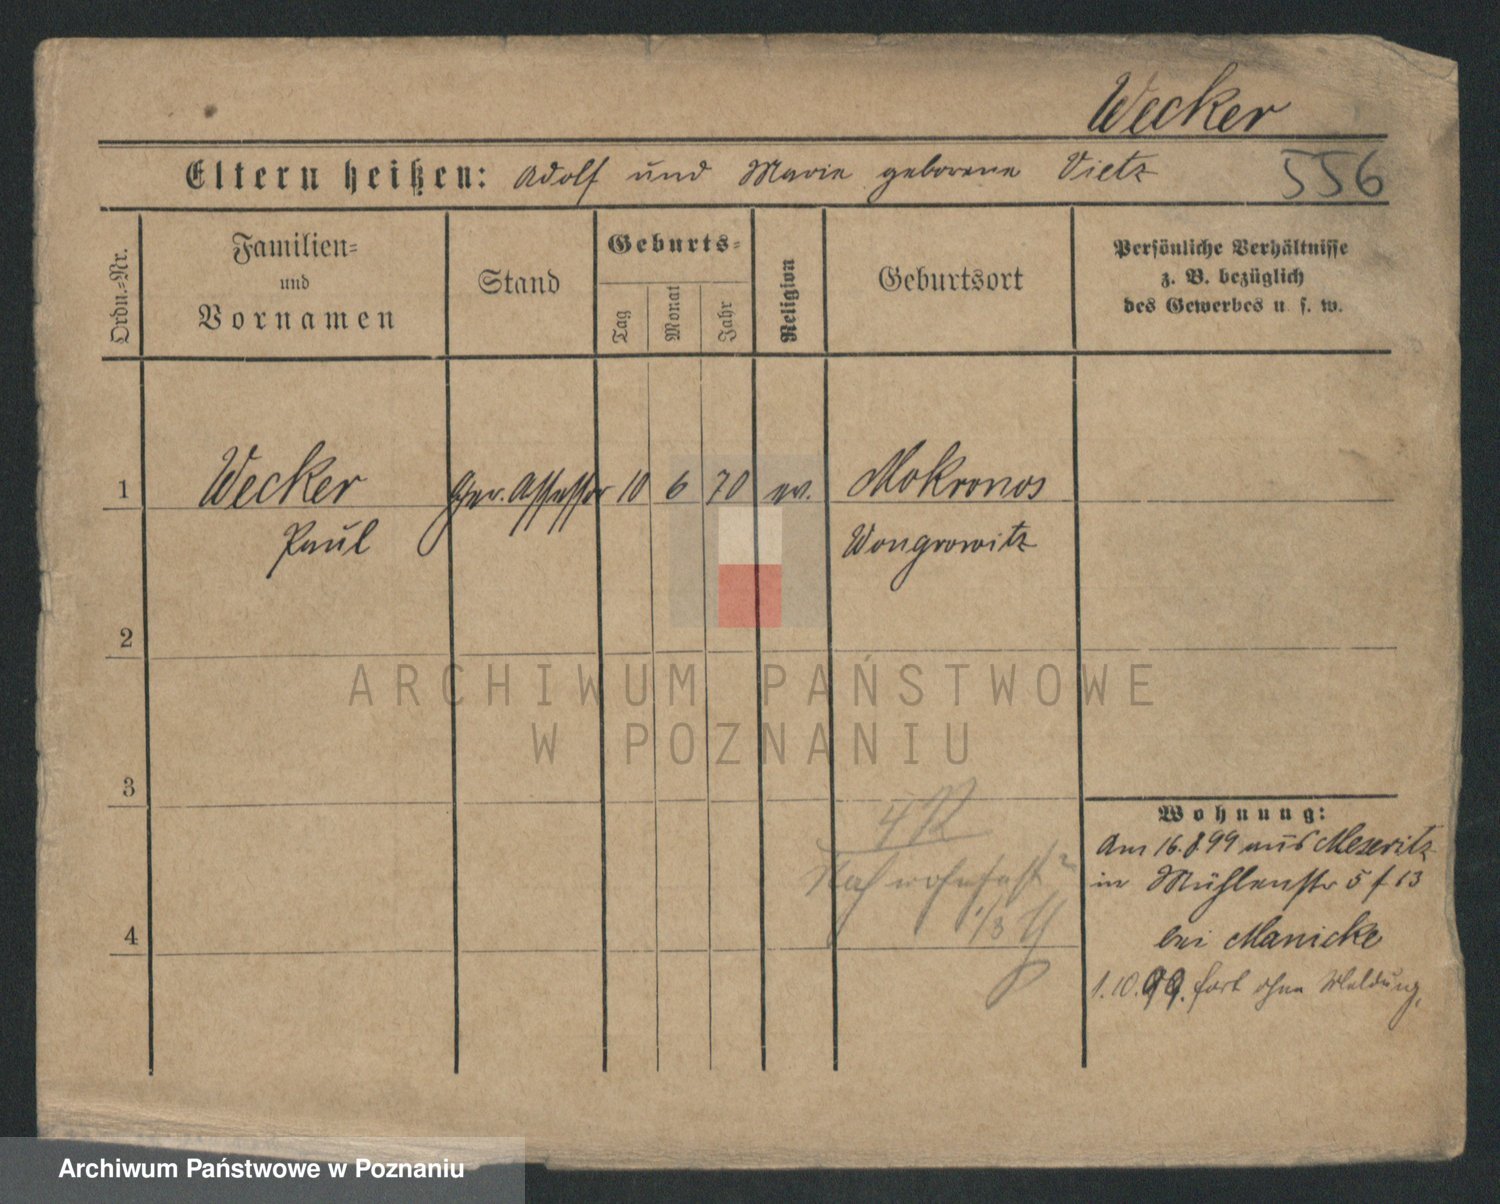 Wecker
Eltern heißen: Adolf und Marie geborene Vietz
556
Ordn.-Nr.
Familien-
und
Vornamen
Stand
Geburts-
Tag
Monat
Jahr
Religion
Geburtsort
Persönliche Verhältnisse
z. B. bezüglich
des Gewerbes u. s. w.
1 Wecker Ger. Assessor 10 6 70 ev. Mokronos
Paul Wongrowitz
2
ARCHIWUM PAŃSTWOWE
W POZNANIU
3
Wohnung:
Am 16.8 99 aus Meseritz
in Mühlenstr 5 f 13
4
bei Manicke
1.10.99. fort ohne Meldung.
Archiwum Państwowe w Poznaniu